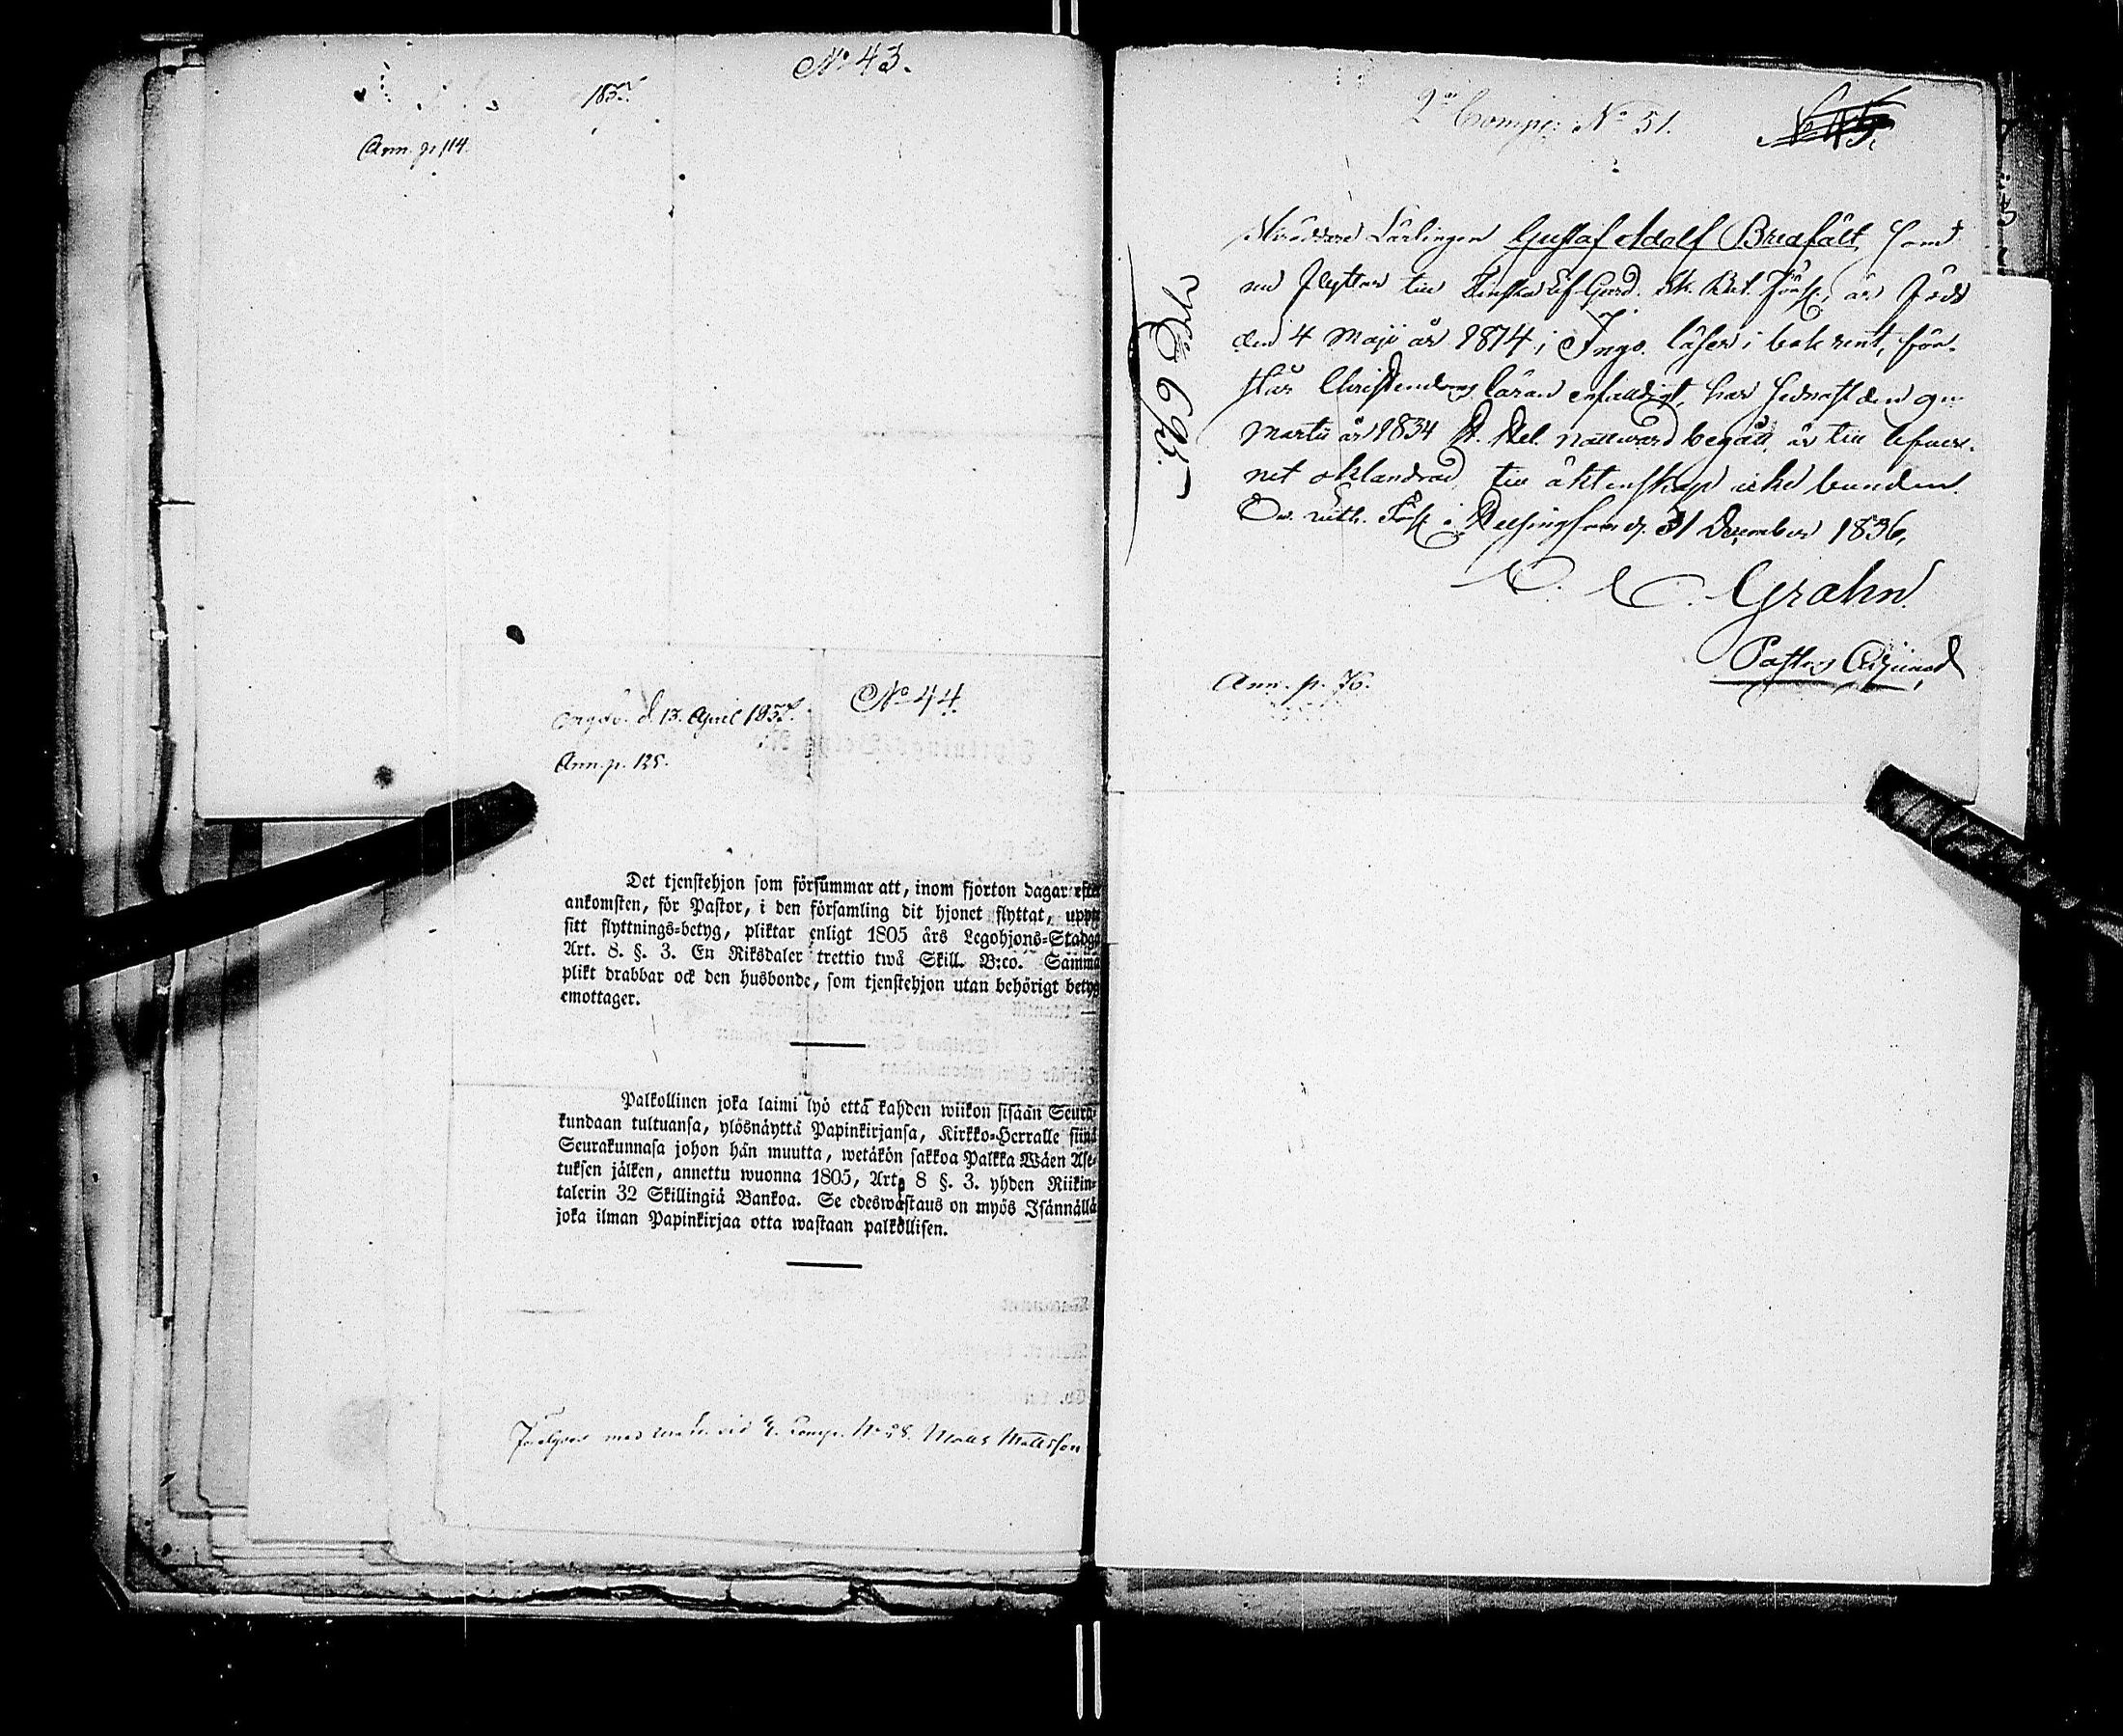 No 43.
1837.
Ann. p. 114.
No 44.
d. 13. April 1837.
Ann. p. 125.
Det tjenstehjon som försummar att, inom fjorton dagar efter
ankomsten, för Pastor, i den församling dit hjonet flyttat, uppte
sitt flyttnings=betyg, pliktar enligt 1805 års Legohjons=Stadga
Art. 8. §. 3. En Riksdaler trettio twå Skill. B:co. Samma
plikt drabbar ock den husbonde, som tjenstehjon utan behörigt betyg
emottager.
Palkollinen joka laimi lyö että kahden wiikon sisään Seura-
kundaan tultuansa, ylösnäyttä Papinkirjansa, Kirkko=Herralle siinä
Seurakunnasa johon hän muutta, wetäkön sakkoa Palkka Wäen Ase-
tuksen jälken, annettu wuonna 1805, Art. 8 §. 3. yhden Riikin=
talerin 32 Skillingiä Bankoa. Se edeswastaus on myös Isännällä
joka ilman Papinkirjaa otta wastaan palkollisen.
med vid Comp. No 28. Matts Mattsson
2:dra Comp: No 51.
No 45.
No 695.
Skräddare Lärlingen Gustaf Adolf Bredfält, som
nu flyttar till Finska Lif-Gard. Sk. Bat. Förs., är född
den 4 Maji år 1814 i Ingo. läser i bok rent, för-
står Christendoms läran enfaldigt, har sednast den 9
Martii år 1834 H. Hel. nattward begått, är till lefwer-
net oklandrad, till äktenskap icke bunden.
Sw. Luth. Förs. i Helsingfors d. 31 December 1836,
Grahn.
Pastors Adjunct
Ann. p. 76.